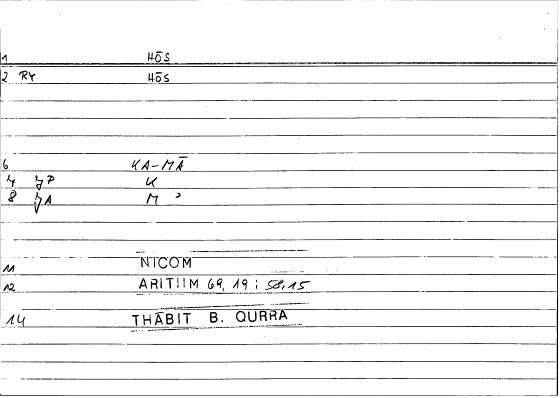 1 HŌS
2 RY HŌS
6 KA-MĀ
7 JP K
8 JA M ʾ
11 NICOM
12 ARITIIM 69, 19 ; 58,15
14 THĀBIT B. QURRA